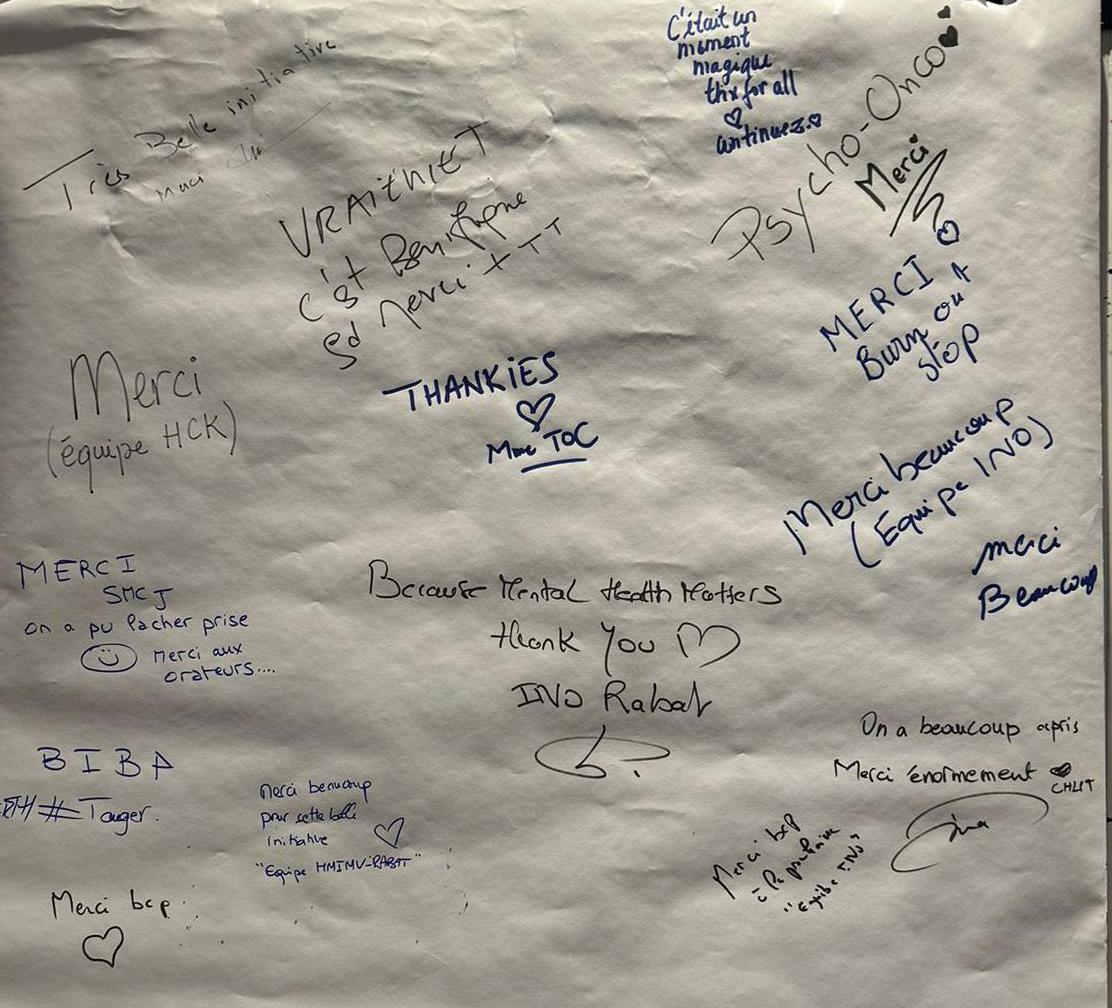 C'était un
moment
magique
thx for all
continuez
Très Belle initiative
merci
VRAIMENT
c'st Benifique
gd merci + TT
Psycho-Onco
Merci
MERCI
Burn out
stop
THANKIES
Mme TOC
Merci
(équipe HCK)
Merci beaucoup
(Equipe INO)
merci
Beaucoup
MERCI
SMCJ
on a pu lacher prise
Merci aux
orateurs....
Because Mental Health Matters
thank you
INO Rabat
On a beaucoup apris
Merci énormement
CHUT
BIBA
# Tanger.
merci beaucoup
pour cette belle
initiative
"Equipe HMIMV-RABAT"
Merci bcp
à la prochaine
"équipe INO"
Merci bcp